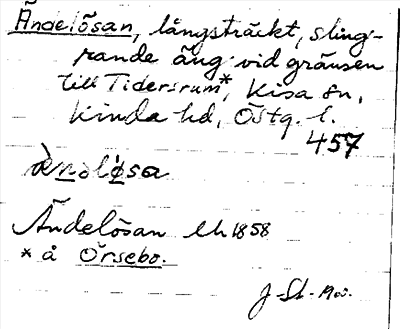 Ändelösan, långsträckt, sling-
rande äng vid gränsen
till Tidersrum*, Kisa sn,
Kinda hd, Östg. l.
457
Ändelösan lh 1858
* å Örsebo.